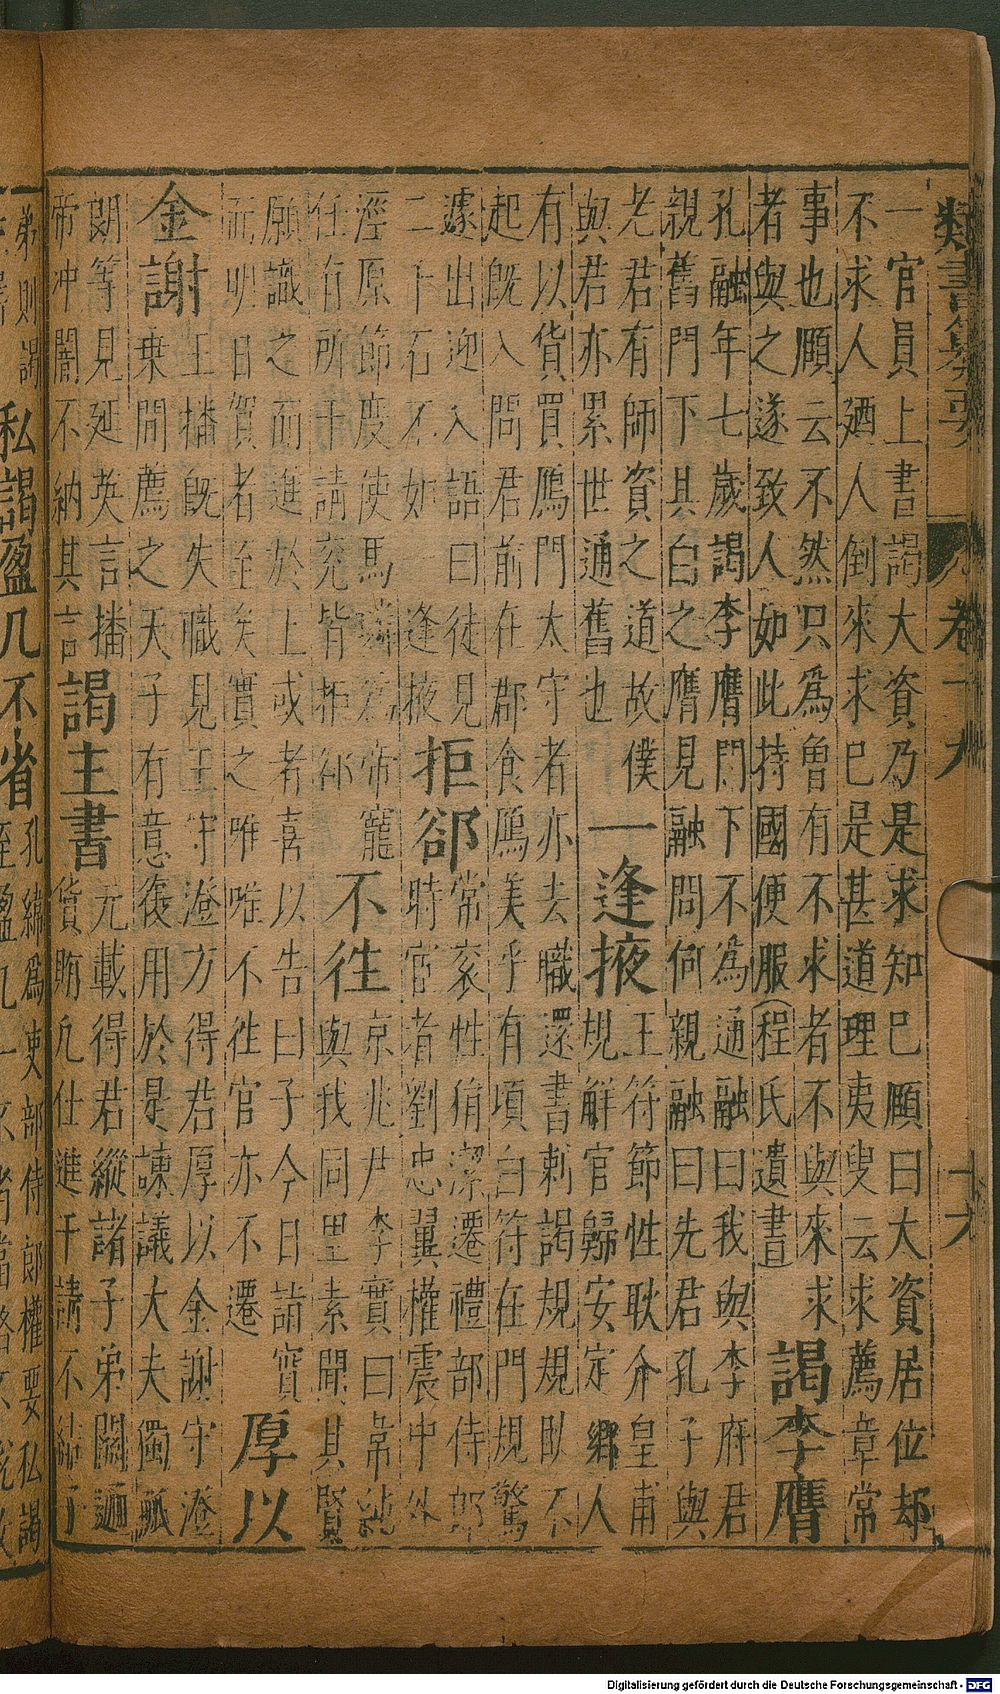 類書纂要 卷十九 十六
一官員上書謁大資乃是求知巳頤曰大資居位却
不求人廼人倒來求巳是甚道理夷叟云求薦章常
事也頤云不然只爲曾有不求者不與來求
者與之遂致人如此持國便服程氏遺書
謁李膺
孔融年七歲謁李膺門下不為通融曰我與李府君
親舊門下具白之膺見融問何親融曰先君孔子與
老君有師資之道故僕
與君亦累世通舊也
一逢掖
王符節性耿介皇甫
規解官歸安定鄉人
有以貨買鴈門太守者亦去職還書刺謁規規臥不
起旣入問君前在郡食鴈美乎有頃白符在門規驚
遽出迎入語曰徒見
二千石不如一逢掖
拒郤
常袞性狷潔遷禮部侍郎
時宦者劉忠翼權震中外
涇原節度使馬璘爲帝寵
任有所干請袞皆拒郤
不徃
京兆尹李實曰韋純
與我同里素聞其賢
願識之而進於上或者喜以告曰子今日詣實
而明日賀者至矣實之唯唯不徃官亦不遷
厚以
金謝
王播旣失職見王守澄方得君厚以金謝守澄
乗間薦之天子有意復用於是諫議大夫獨孤
朗等見延英言播
帝冲闇不納其言
謁主書
元載得君縱諸子弟關通
貨賄凡仕進干請不結子
弟則謁
私謁盈几不省
孔緯爲吏部侍郎權要私謁
至盈几一不省當路不悅改
Digitalisierung gefördert durch die Deutsche Forschungsgemeinschaft - DFG